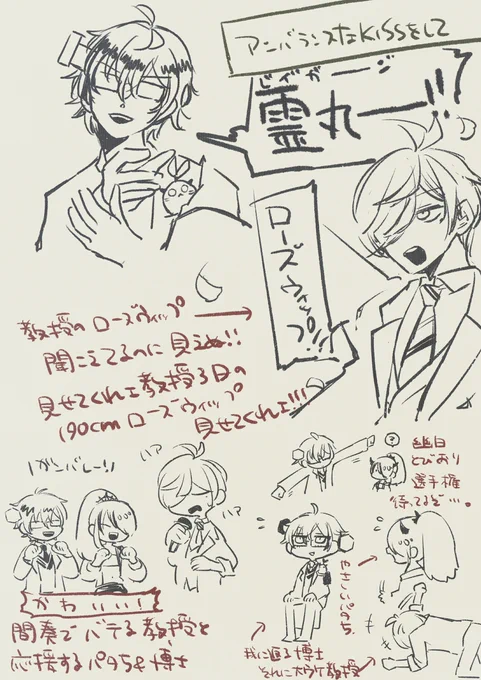 アンバランスなKissをして
霊丸ー!!
ローズウィップ!!
教授の ローズウィップ
聞こえてるのに 見えぬ!!
見せてくれェ教授3日の
190cm ローズウィップ
見せてくれェ!!!
?
とびおり
選手権
待ってるぞ…。
!ガンバレー!!
かわいいい!
間奏で バテる教授と
応援するパタち&博士
やさしいパタち
我に返る博士
そんに大ウケ教授